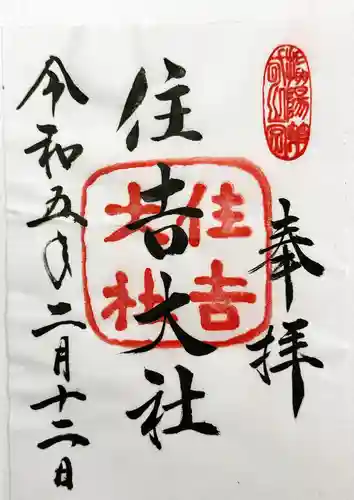 奉拝
住吉大社
住吉大社
令和五年二月十二日